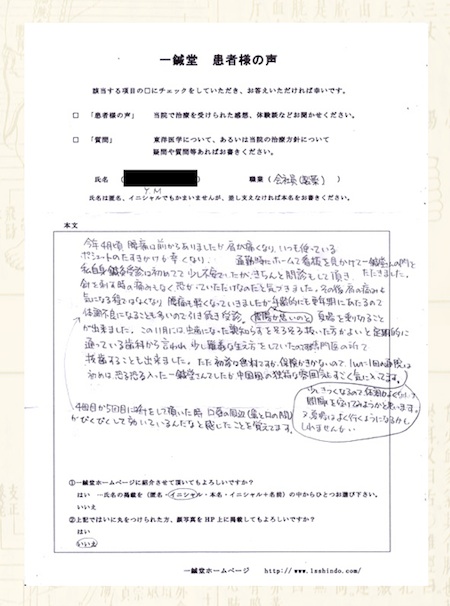 一鍼堂 患者様の声
該当する項目の□にチェックをしていただき、お答えいただければ幸いです。
□ 「患者様の声」 当院で治療を受けられた感想、体験談などお聞かせください。
□ 「質問」 東洋医学について、あるいは当院の治療方針について
疑問や質問等あればお書きください。
氏名 職業 ( 会社員(営業) )
Y.M
氏名は匿名、イニシャルでもかまいませんが、差し支えなければ本名をお書きください。
本文
今年4月頃 腰痛は前からありましたが 肩が痛くなり、いつも使っている
のたすきかけも辛くなり、 通勤時にホームで看板を見かけて一鍼堂さんの門を
たたきました。
私自身鍼灸
は初めてで 少し不安でしたが、きちんと問診をして頂き、
針を刺す時の痛みもなく 恐がっていただけなのだと気づきました。その後 肩の痛みも
気になる程ではなくなり 腰痛も軽くなっていきましたが 年齢的にも更年期にあたるので
体調不良になることも多いので引き続き
夏場を乗り切ること
が出来ました。この11月には
親知らずを
抜いた方がよいと定期的に
通っている歯科から言われ 少し
生え方をしていたので専門医の所で
抜歯することも出来ました。ただ
保険がきかないので、
初めは恐る恐る入った一鍼堂さんでしたが 中国風の独特な雰囲気もすごく気に入ってます。
少しきつくなるので、体調がよくなったら
間隔を
みようかと思います。
又
よく行くようになるかも
しれませんが…
4回目か5回目に針をして頂いた時 口唇の周辺(鼻と口の間)が
ぴくぴくして効いているんだなと感じたことを覚えてます。
①一鍼堂ホームページに紹介させて頂いてもよろしいですか？
はい →氏名の掲載を（匿名・イニシャル・本名・イニシャル＋名前）の中からひとつお選び下さい。
いいえ
②上記ではいに丸をつけられた方、顔写真を HP 上に掲載してもよろしいですか？
はい
いいえ
一鍼堂ホームページ http://www.1sshindo.com/